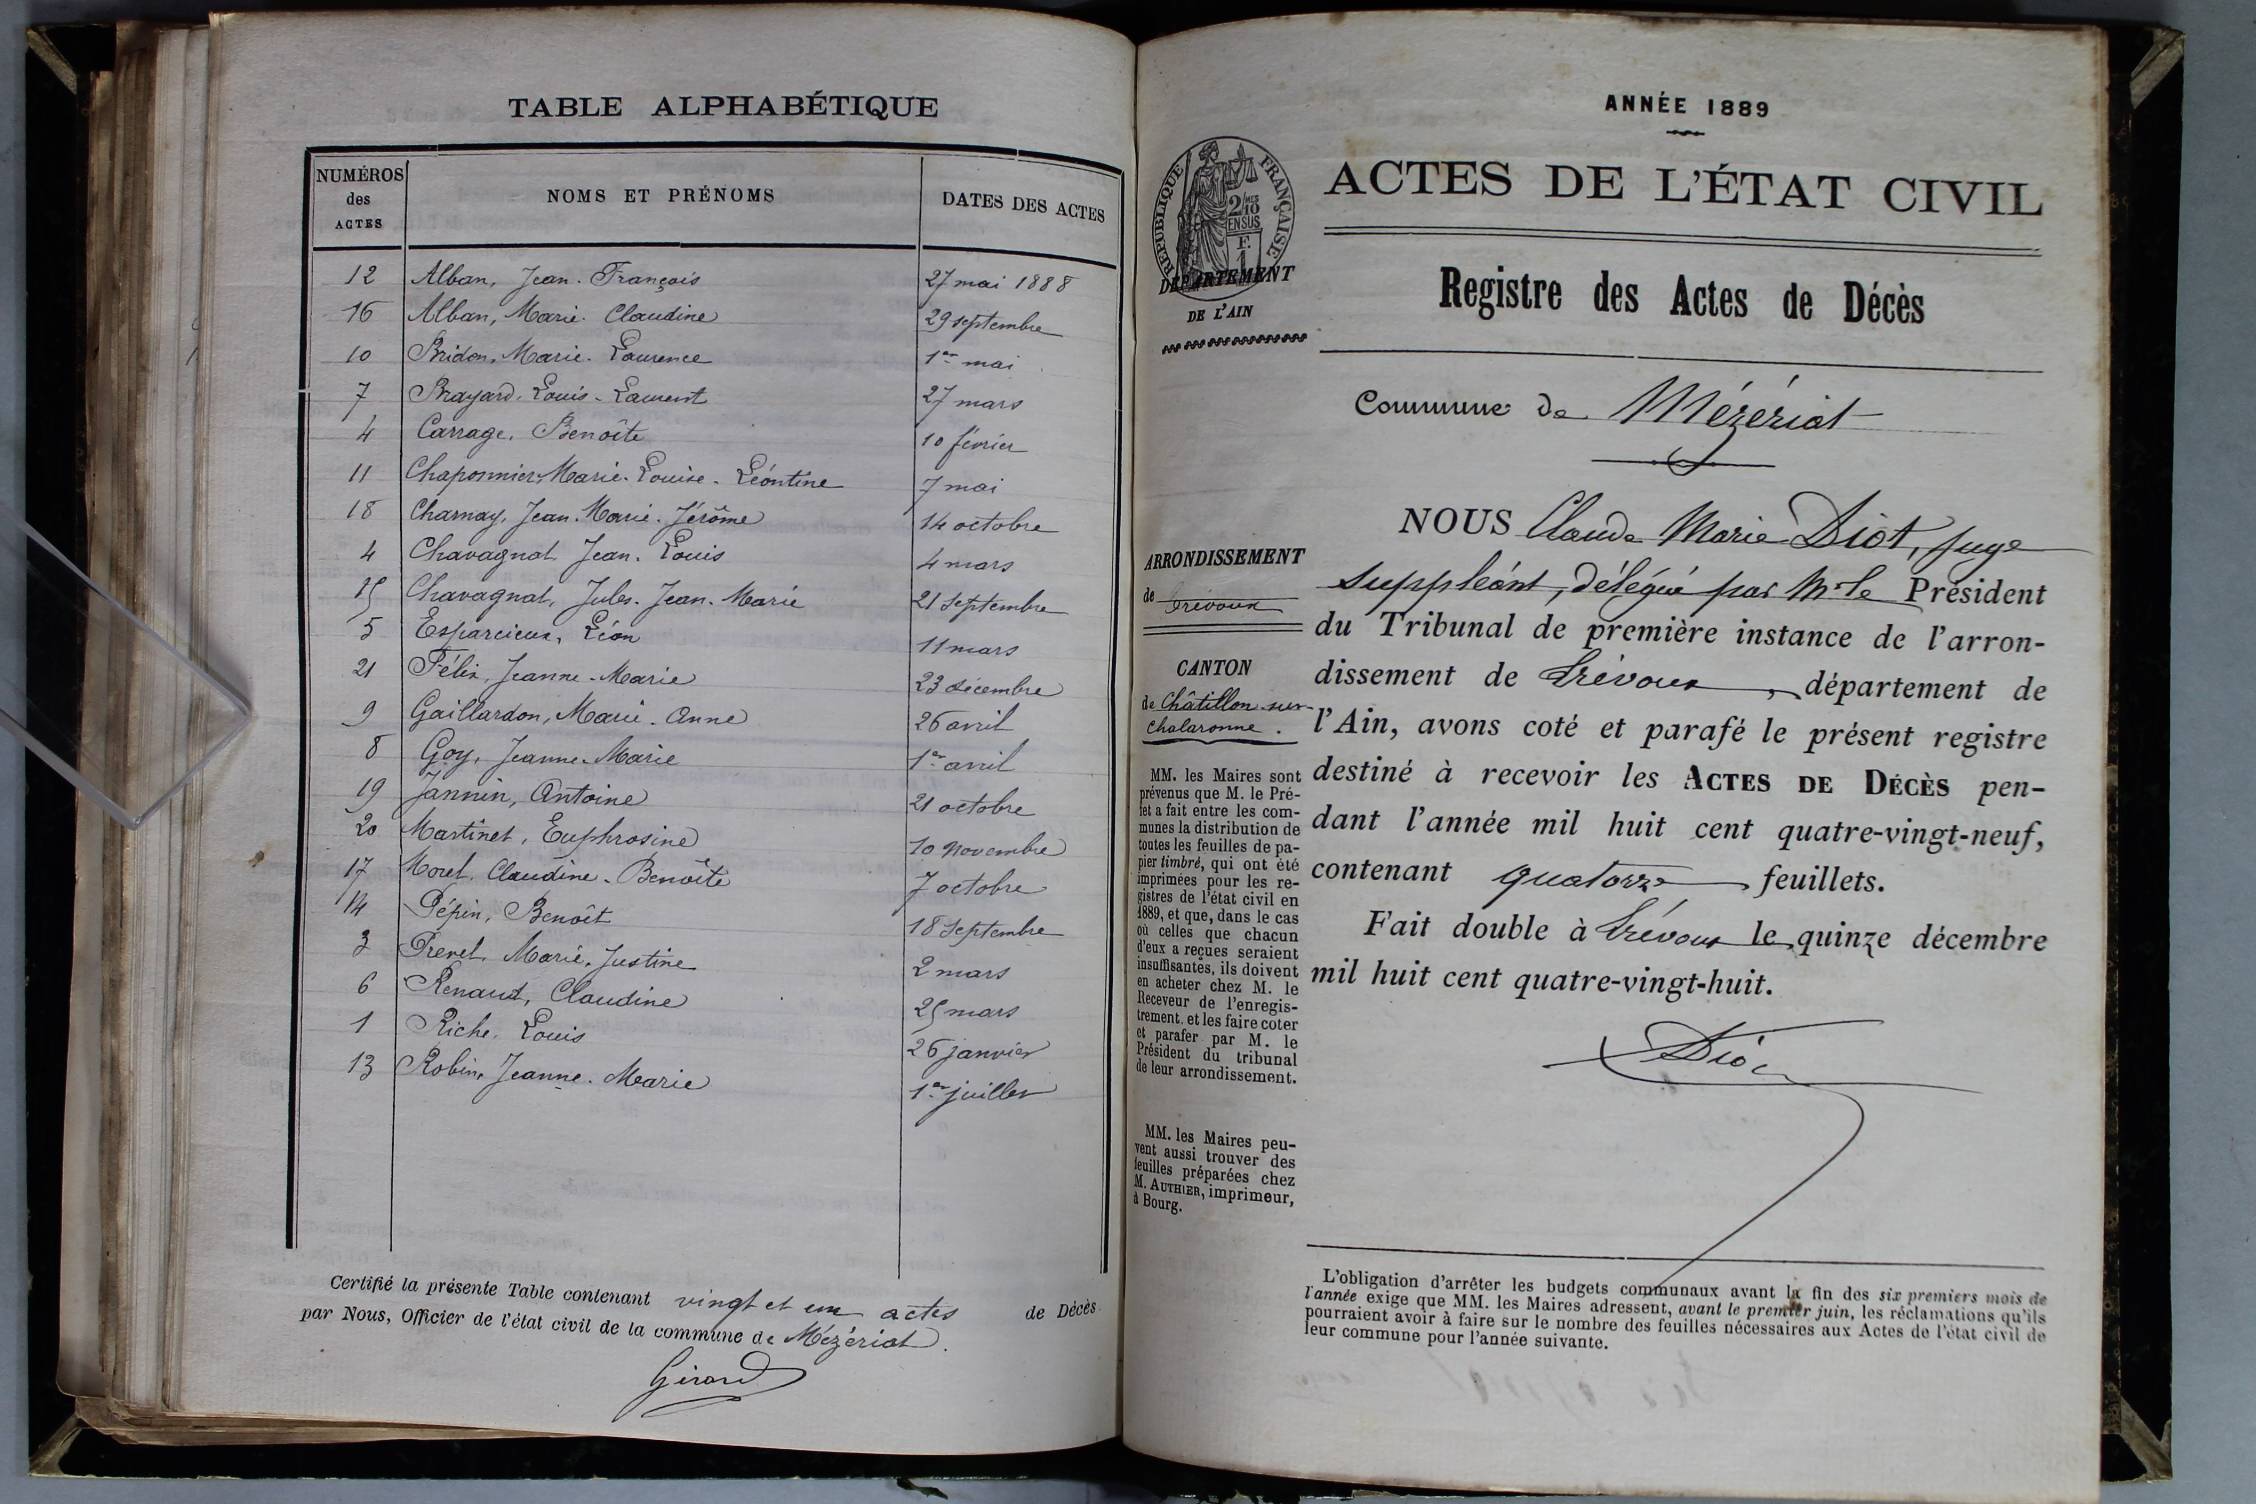 TABLE ALPHABÉTIQUE
NUMÉROS des ACTES NOMS ET PRÉNOMS DATES DES ACTES
12 Alban, Jean-François 27 mai 1888
16 Alban, Marie-Claudine 29 septembre
10 Bridon, Marie-Laurence 1er mai
7 Brayard, Louis-Laurent 27 mars
4 Carrage, Benoîte 10 février
11 Chaponnier, Marie-Louise-Léontine 7 mai
18 Charnay, Jean-Marie-Jérôme 14 octobre
4 Chavagnat Jean-Louis 4 mars
15 Chavagnat, Jules-Jean-Marie 21 septembre
5 Esparcieux, Léon 11 mars
21 Félix, Jeanne-Marie 23 décembre
9 Gaillardon, Marie-Anne 26 avril
8 Goy, Jeanne-Marie 1er avril
19 Jannin, Antoine 21 octobre
20 Martinet, Euphrosine 10 novembre
17 Morel, Claudine-Benoîte 7 octobre
14 Pépin, Benoît 18 septembre
3 Prevel, Marie-Justine 2 mars
6 Renaud, Claudine 25 mars
1 Riche, Louis 26 janvier
13 Robin, Jeanne-Marie 1er juillet
Certifié la présente Table contenant vingt et un actes de Décès
par Nous, Officier de l'état civil de la commune de Mézériat.
Girard
ANNÉE 1889
ACTES DE L'ÉTAT CIVIL
RÉPUBLIQUE FRANÇAISE
2/10 EN SUS
F. 1
DÉPARTEMENT
DE L'AIN
Registre des Actes de Décès
Commune de Mézériat
ARRONDISSEMENT
de Trévoux
CANTON
de Châtillon-sur-
Chalaronne.
MM. les Maires sont
prévenus que M. le Pré-
fet a fait entre les com-
munes la distribution de
toutes les feuilles de pa-
pier timbré, qui ont été
imprimées pour les re-
gistres de l'état civil en
1889, et que, dans le cas
où celles que chacun
d'eux a reçues seraient
insuffisantes, ils doivent
en acheter chez M. le
Receveur de l'enregis-
trement, et les faire coter
et parafer par M. le
Président du tribunal
de leur arrondissement.
MM. les Maires peu-
vent aussi trouver des
feuilles préparées chez
M. AUTHIER, imprimeur,
à Bourg.
NOUS Claude Marie Diot, juge
suppléant, délégué par Mr le Président
du Tribunal de première instance de l'arron-
dissement de Trévoux, département de
l'Ain, avons coté et parafé le présent registre
destiné à recevoir les ACTES DE DÉCÈS pen-
dant l'année mil huit cent quatre-vingt-neuf,
contenant quatorze feuillets.
Fait double à Trévoux le quinze décembre
mil huit cent quatre-vingt-huit.
Diot
L'obligation d'arrêter les budgets communaux avant la fin des six premiers mois de
l'année exige que MM. les Maires adressent, avant le premier juin, les réclamations qu'ils
pourraient avoir à faire sur le nombre des feuilles nécessaires aux Actes de l'état civil de
leur commune pour l'année suivante.